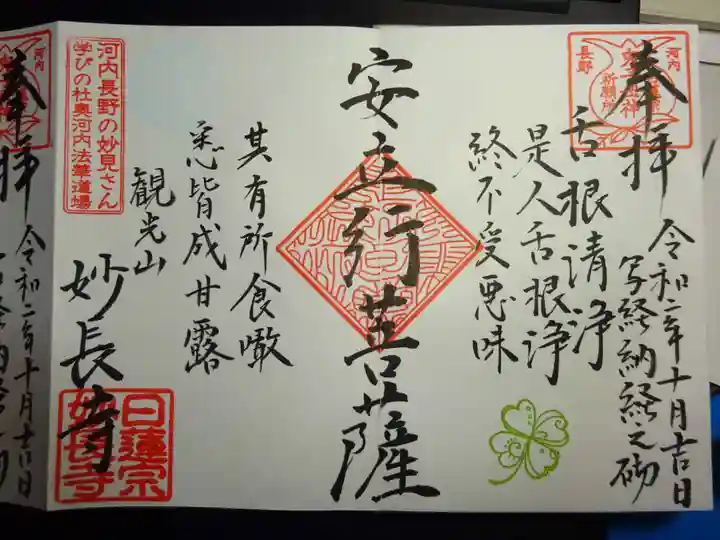 奉拝
令和二年十月吉日
写経納経之砌
河内
長野
祈願所
舌根清浄
是人舌根浄
終不受悪味
安立行菩薩
其有所食噉
悉皆成甘露
観光山
妙長寺
河内長野の妙見さん
学びの杜奥河内法華道場
日蓮宗
妙長寺
奉拝
令和二年十月吉日